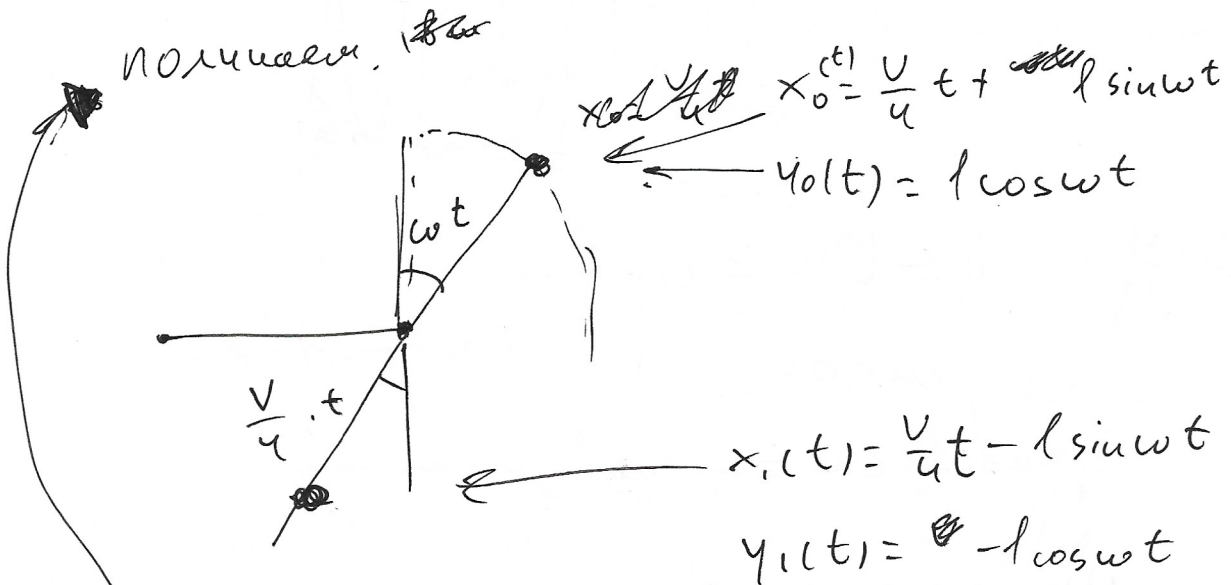 получаем,
x₀(t) = v/4 t + l sin ωt
y₀(t) = l cos ωt
ωt
v/4 · t
x₁(t) = v/4 t − l sin ωt
y₁(t) = − l cos ωt